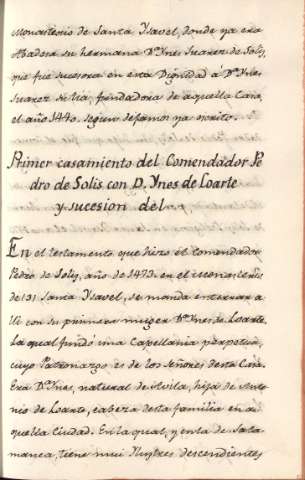 Monasterio de Santa Ysavel, donde ya era
Abadesa su hermana Dª Ynes Suarez de Solis,
que fue sucesora en esta Dignidad á Dª Ynes
Suarez su tia, fundadora de aquella Casa,
el año 1440. segun dejamos ya escrito.
Primer casamiento del Comendador Pe
dro de Solis con D. Ynes de Loarte
y sucesion del
En el testamento que hizo el comendador
Pedro de Solis, año de 1473. en el monasterio
de Santa Ysavel, se manda enterrar a
lli con su primera muger Dª Ynes de Loarte,
la qual fundó una Capellania perpetua,
cuyo Patronazgo es de los señores desta Casa.
Era Dª Ynes, natural de Avila, hija de Anto
nio de Loarte, cabeza desta familia en a
quella Ciudad. En la qual, y en la de Sala
manca, tiene mui Ylustres descendientes